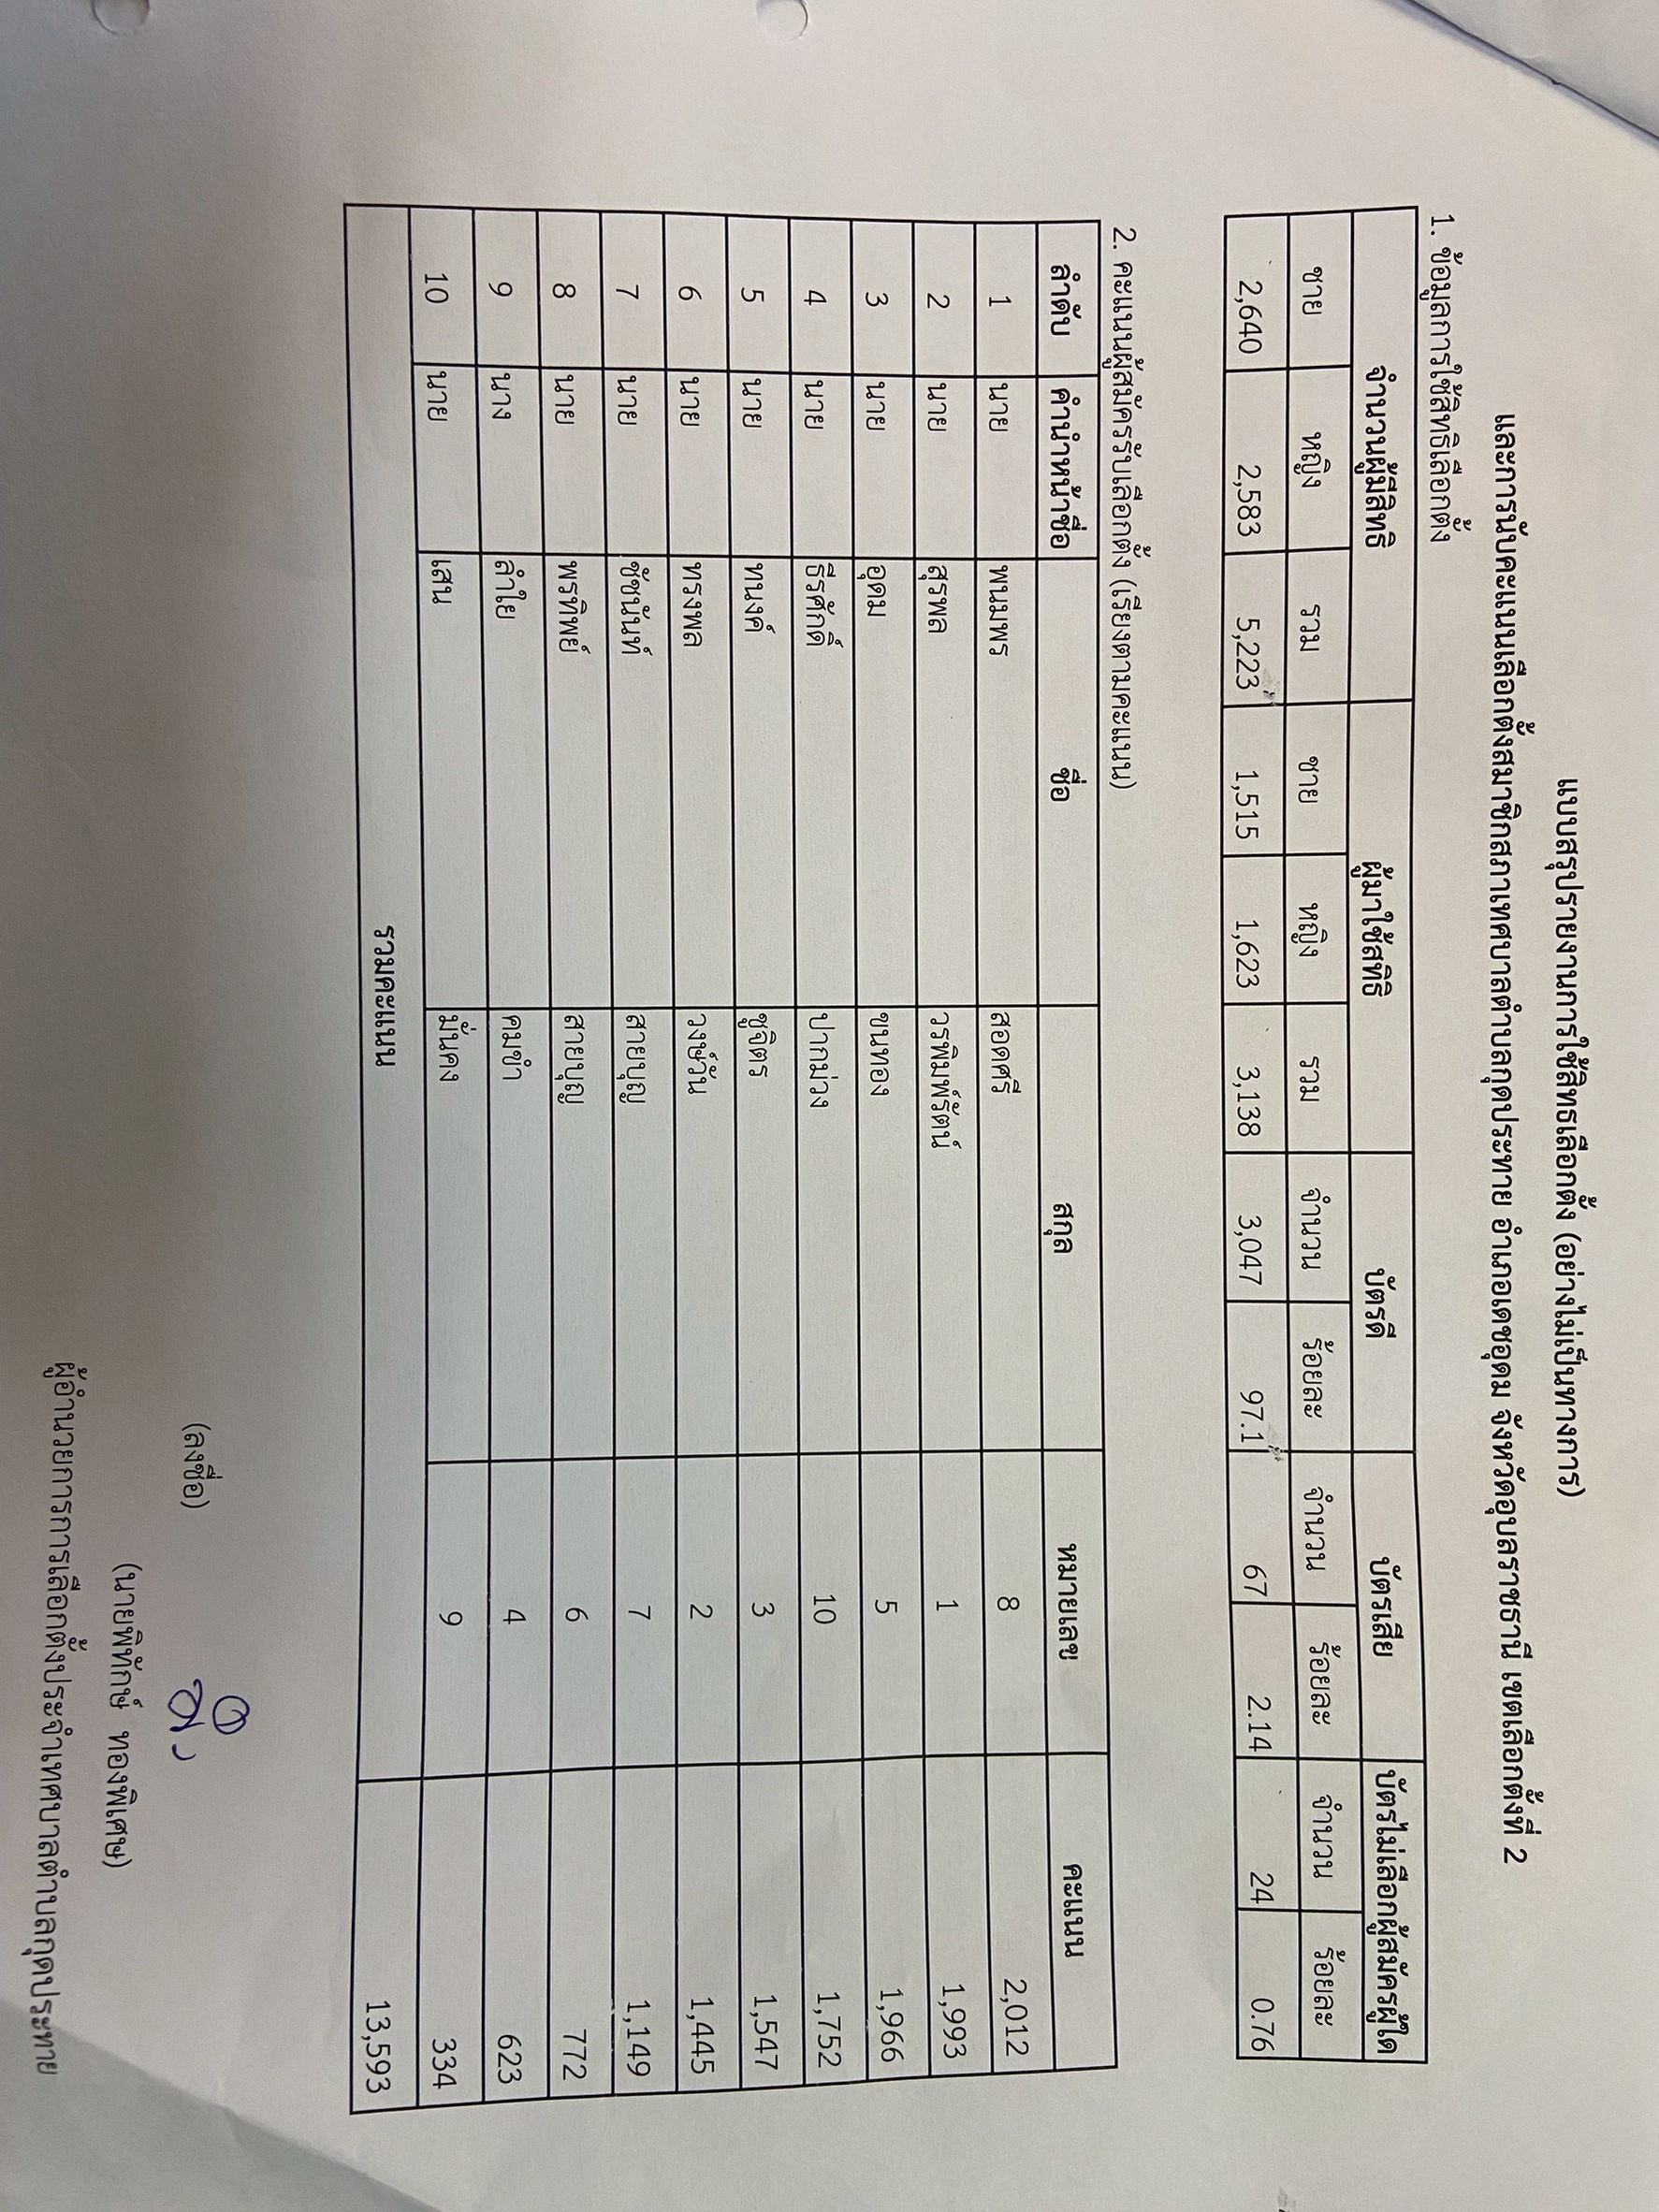 แบบสรุปรายงานการใช้สิทธเลือกตั้ง (อย่างไม่เป็นทางการ)
และการนับคะแนนเลือกตั้งสมาชิกสภาเทศบาลตำบลกุดประทาย อำเภอเดชอุดม จังหวัดอุบลราชธานี เขตเลือกตั้งที่ 2
1. ข้อมูลการใช้สิทธิเลือกตั้ง
จำนวนผู้มีสิทธิ ผู้มาใช้สิทธิ บัตรดี บัตรเสีย บัตรไม่เลือกผู้สมัครผู้ใด
ชาย หญิง รวม ชาย หญิง รวม จำนวน ร้อยละ จำนวน ร้อยละ จำนวน ร้อยละ
2,640 2,583 5,223 1,515 1,623 3,138 3,047 97.1 67 2.14 24 0.76
2. คะแนนผู้สมัครรับเลือกตั้ง (เรียงตามคะแนน)
ลำดับ คำนำหน้าชื่อ ชื่อ สกุล หมายเลข คะแนน
1 นาย พนมพร สอดศรี 8 2,012
2 นาย สุรพล วรพิมพ์รัตน์ 1 1,993
3 นาย อุดม ขนทอง 5 1,966
4 นาย ธีรศักดิ์ ปากม่วง 10 1,752
5 นาย ทนงค์ ชูจิตร 3 1,547
6 นาย ทรงพล วงษ์วัน 2 1,445
7 นาย ชัชนันท์ สายบุญ 7 1,149
8 นาย พรทิพย์ สายบุญ 6 772
9 นาง ลำใย คมขำ 4 623
10 นาย เสน มั่นคง 9 334
รวมคะแนน 13,593
(ลงชื่อ)
(นายพิทักษ์ ทองพิเศษ)
ผู้อำนวยการการเลือกตั้งประจำเทศบาลตำบลกุดประทาย